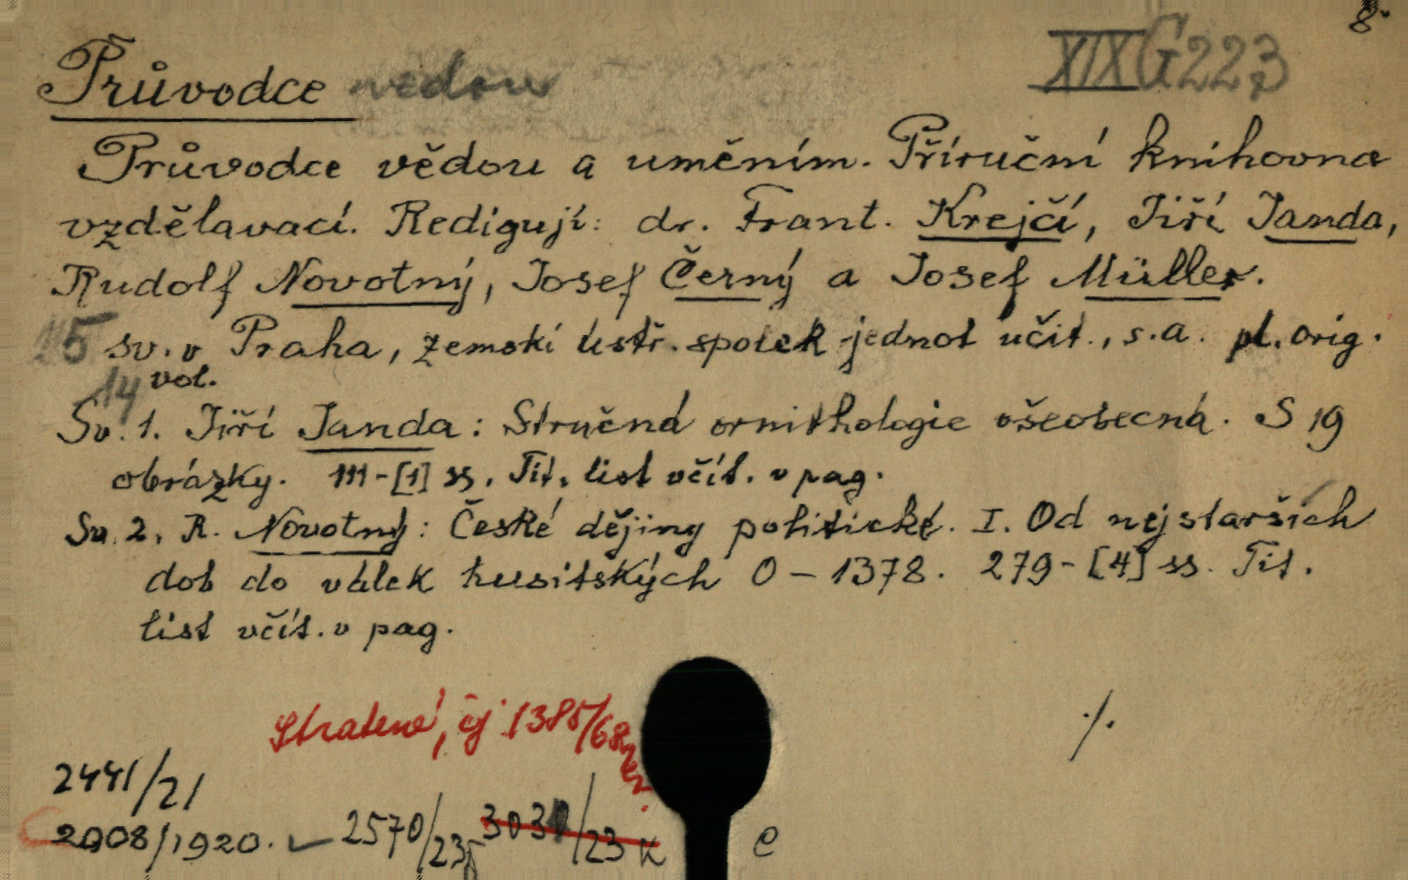 8·
Průvodce vědou XIX G 223
Průvodce vědou a uměním. Příruční knihovna
vzdělavací. Redigují: dr. Frant. Krejčí, Jiří Janda,
Rudolf Novotný, Josef Černý a Josef Müller.
15 sv. v Praha, zemskí ústř. spolek jednot učit., s.a. pl. orig.
14 vol.
Sv. 1. Jiří Janda: Stručná ornithologie všeobecná. S 19
obrázky. 111-[1] ss. Tit. list včít. v pag.
Sv. 2. R. Novotný: České dějiny politické. I. Od nejstarších
dob do válek husitských 0-1378. 279-[4] ss. Tit.
list včít. v pag.
Stratené, čj 1385/68
·/·
2441/21
2908/1920. 2570/23 3031/23 K e